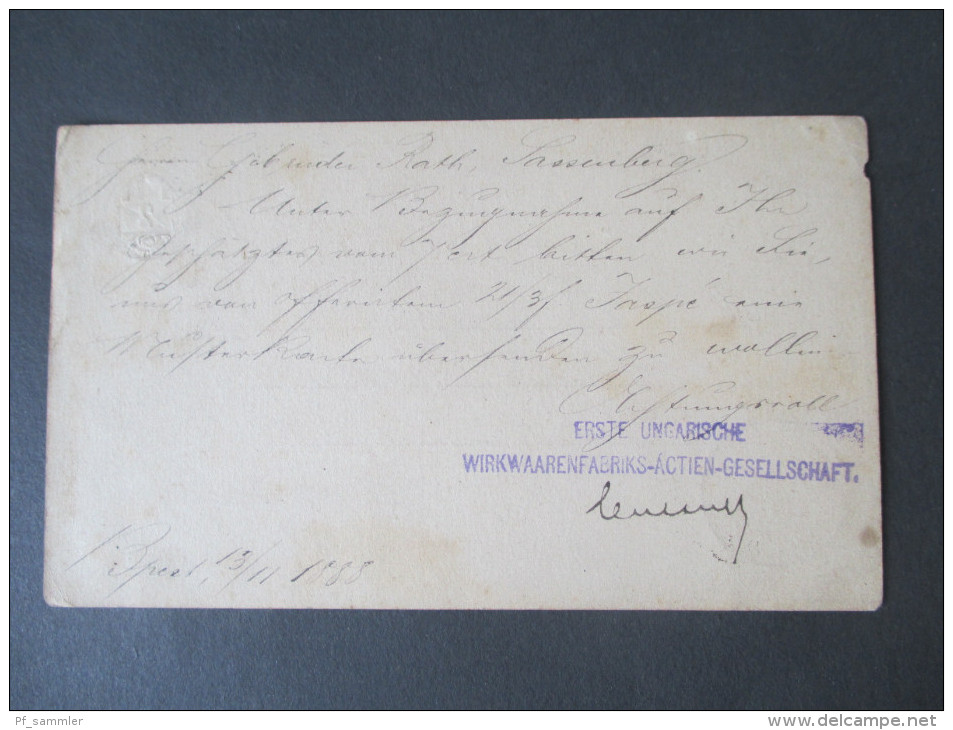 Herren Gebrüder Rath, Sassenberg.
Unter Bezugnahme auf Ihr
geschätztes vom bitten wir Sie,
uns von offerirtem 21/3f. Jaspé eine
Musterkarte übersenden zu wollen
Achtungsvoll
ERSTE UNGARISCHE
WIRKWAARENFABRIKS-ACTIEN-GESELLSCHAFT.
Bpest, 13/11 1888
Pf_sammler
www.delcampe.net